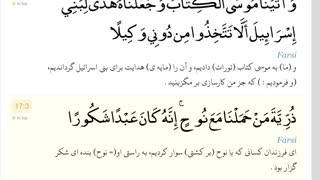 وَآتَيْنَا مُوسَى الْكِتَابَ وَجَعَلْنَاهُ هُدًى لِّبَنِي
إِسْرَائِيلَ أَلَّا تَتَّخِذُوا مِن دُونِي وَكِيلًا
Farsi
و (ما) به موسی کتاب (تورات) دادیم، و آن را (مایه ی) هدایت برای بنی اسرائیل گردانیدیم،
(و فرمودیم: ) که جز من کارسازی بر مگزینید .
17:3
ذُرِّيَّةَ مَنْ حَمَلْنَا مَعَ نُوحٍ ۚ إِنَّهُ كَانَ عَبْدًا شَكُورًا
Farsi
ای فرزندان کسانی که با نوح (بر کشتی) سوار کردیم، به راستی او(= نوح) بنده ای شکر
گزار بود .